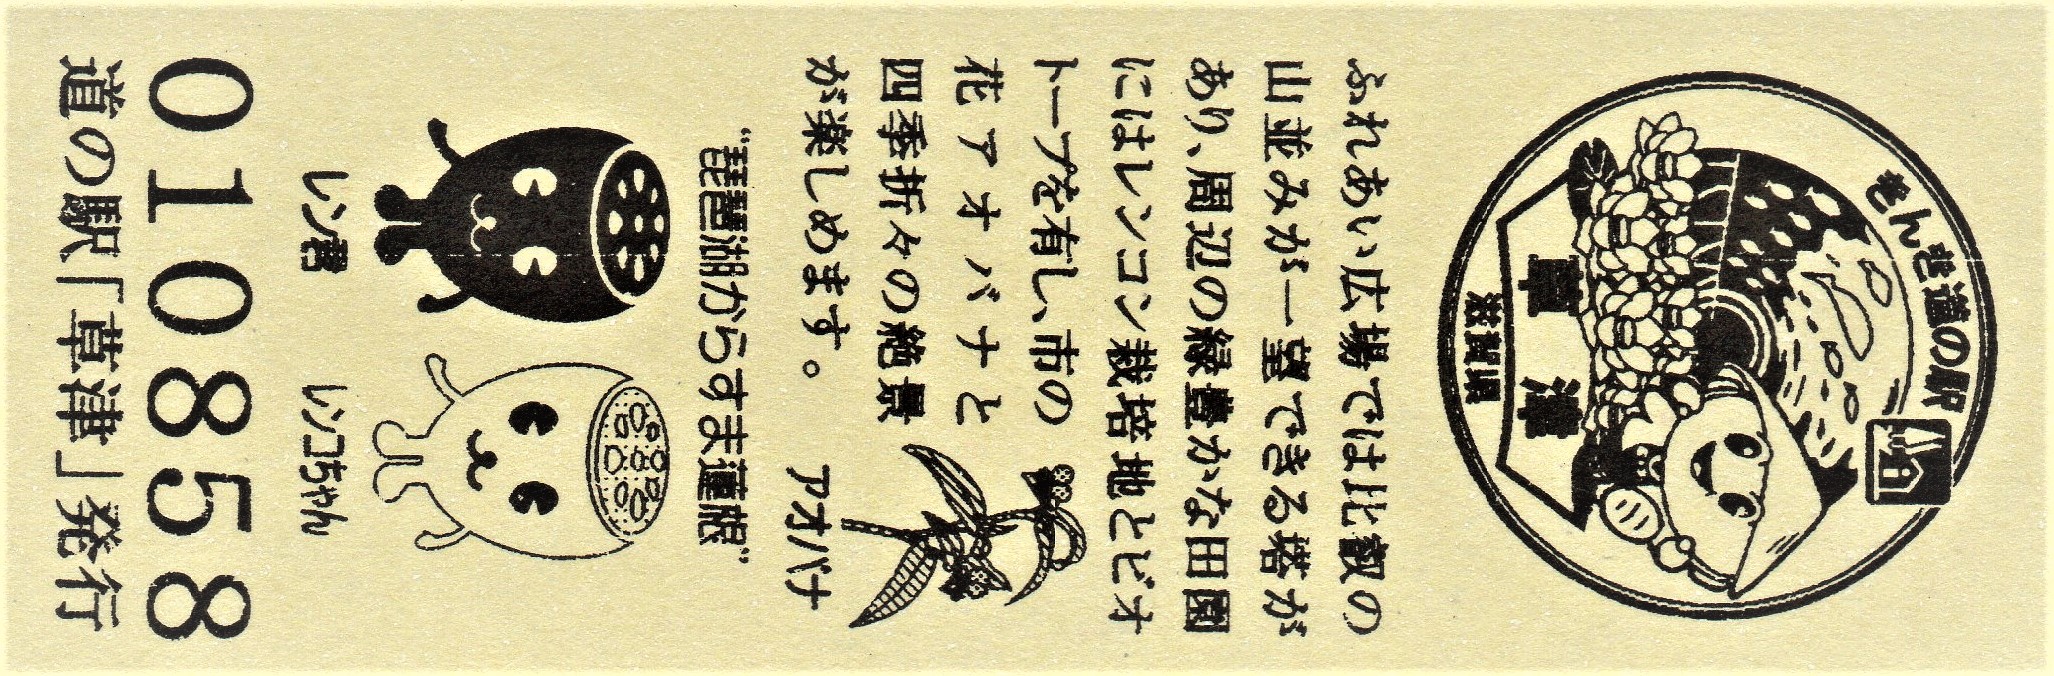 きんき道の駅
草津
滋賀県
ふれあい広場では比叡の
山並みが一望できる塔が
あり、周辺の緑豊かな田園
にはレンコン栽培地とビオ
トープを有し、市の
花アオバナと
四季折々の絶景
が楽しめます。
アオバナ
“琵琶湖からすま蓮根”
レン君
レンコちゃん
010858
道の駅「草津」発行